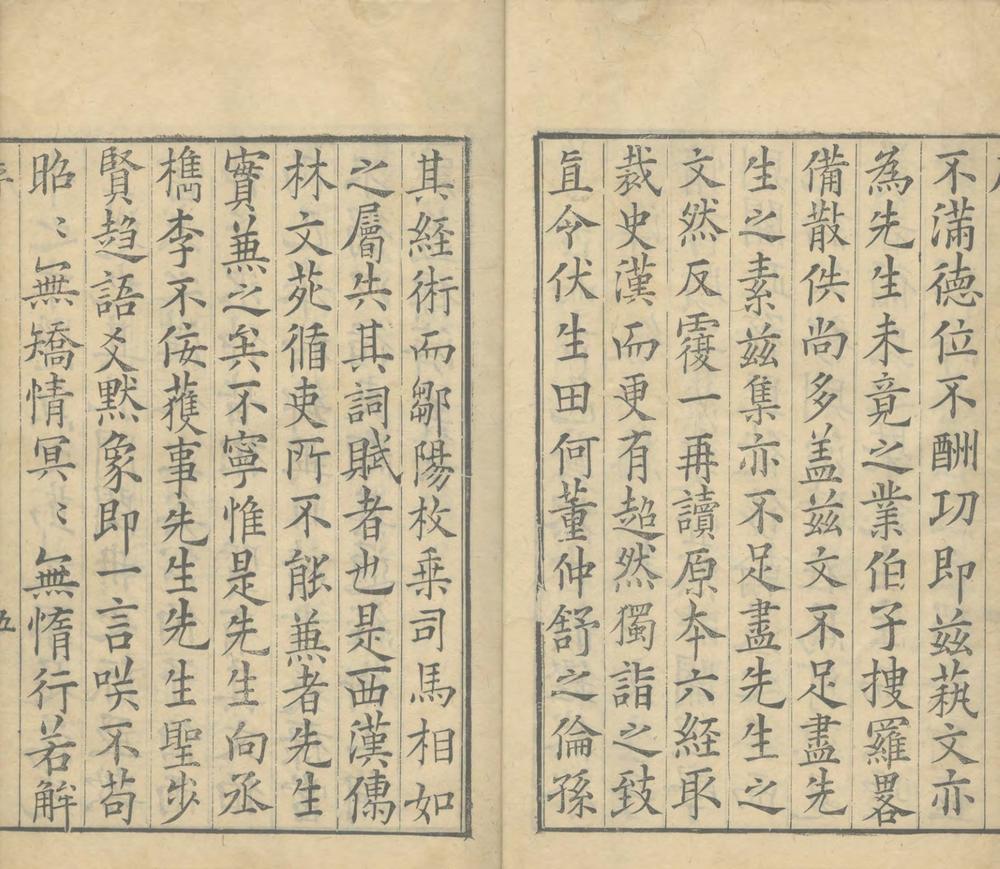 不滿德位不酬功即茲蓺文亦
為先生未竟之業伯子搜羅畧
備散佚尚多盖茲文不足盡先
生之素茲集亦不足盡先生之
文然反覆一再讀原夲六經取
裁史漢而更有超然獨詣之致
直令伏生田何董仲舒之倫孫
其經術而鄒陽枚乗司馬相如
之屬失其詞賦者也是西漢儒
林文苑循吏所不能兼者先生
實兼之矣不寧惟是先生向丞
檇李不佞獲事先生先生聖步
賢趋語爻默象即一言唉不苟
昭〻無矯情冥〻無惰行若解
五